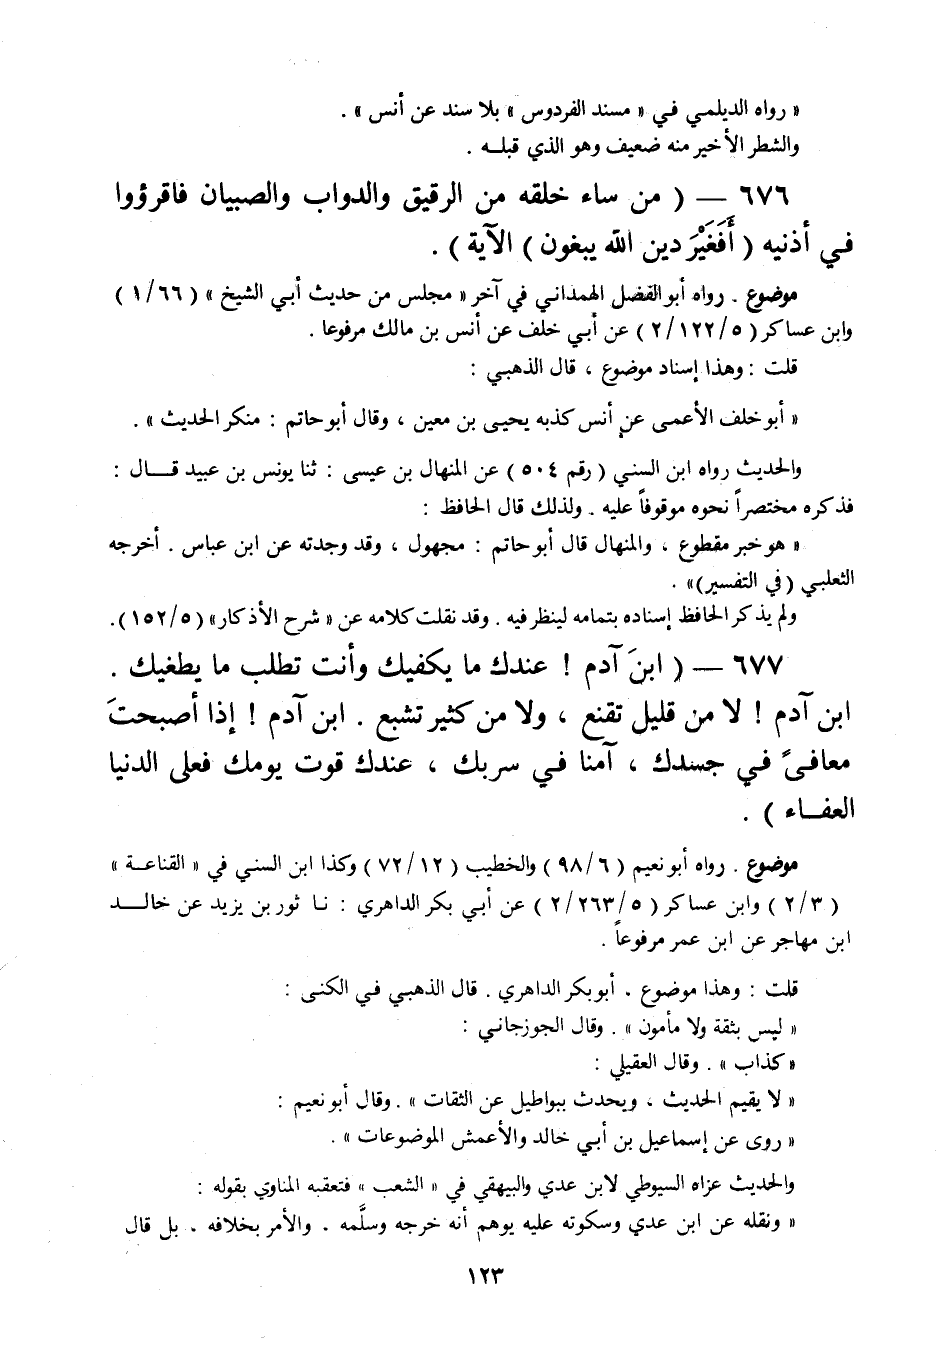 « رواه الديلمي في « مسند الفردوس » بلا سند عن أنس » .
والشطر الأخير منه ضعيف وهو الذي قبلـه .
٦٧٦ — ( من ساء خلقه من الرقيق والدواب والصبيان فاقرؤوا
في أذنيه ( أَفَغَيْرَ دين الله يبغون ) الآية ) .
موضوع . رواه أبو الفضل الهمداني في آخر « مجلس من حديث أبي الشيخ » ( ١/٦٦ )
وابن عساكر ( ٢/١٢٢/٥ ) عن أبي خلف عن أنس بن مالك مرفوعا .
قلت : وهذا إسناد موضوع ، قال الذهبي :
« أبو خلف الأعمى عن أنس كذبه يحيى بن معين ، وقال أبو حاتم : منكر الحديث » .
والحديث رواه ابن السني ( رقم ٥٠٤ ) عن المنهال بن عيسى : ثنا يونس بن عبيد قــال :
فذكره مختصراً نحوه موقوفاً عليه . ولذلك قال الحافظ :
« هو خبر مقطوع ، والمنهال قال أبو حاتم : مجهول ، وقد وجدته عن ابن عباس . أخرجه
الثعلبي (في التفسير)» .
ولم يذكر الحافظ إسناده بتمامه لينظر فيه . وقد نقلت كلامه عن « شرح الأذكار» (١٥٢/٥).
٦٧٧ — ( ابنَ آدم ! عندك ما يكفيك وأنت تطلب ما يطغيك .
ابن آدم ! لا من قليل تقنع ، ولا من كثير تشبع . ابن آدم ! إذا أصبحتَ
معافىً في جسدك ، آمنا في سربك ، عندك قوت يومك فعلى الدنيا
العفـاء ) .
موضوع . رواه أبو نعيم ( ٩٨/٦ ) والخطيب ( ٧٢/١٢ ) وكذا ابن السني في « القناعـة »
( ٢/٣ ) وابن عساكر ( ٢/٢٦٣/٥ ) عن أبي بكر الداهري : نـا ثور بن يزيد عن خالــد
ابن مهاجر عن ابن عمر مرفوعاً .
قلت : وهذا موضوع . أبو بكر الداهري . قال الذهبي في الكنى :
« ليس بثقة ولا مأمون » . وقال الجوزجاني :
« كذاب » . وقال العقيلي :
« لا يقيم الحديث ، ويحدث ببواطيل عن الثقات » . وقال أبو نعيم :
« روى عن إسماعيل بن أبي خالد والأعمش الموضوعات » .
والحديث عزاه السيوطي لابن عدي والبيهقي في « الشعب » فتعقبه المناوي بقوله :
« ونقله عن ابن عدي وسكوته عليه يوهم أنه خرجه وسلَّمه . والأمر بخلافه . بل قال
١٢٣